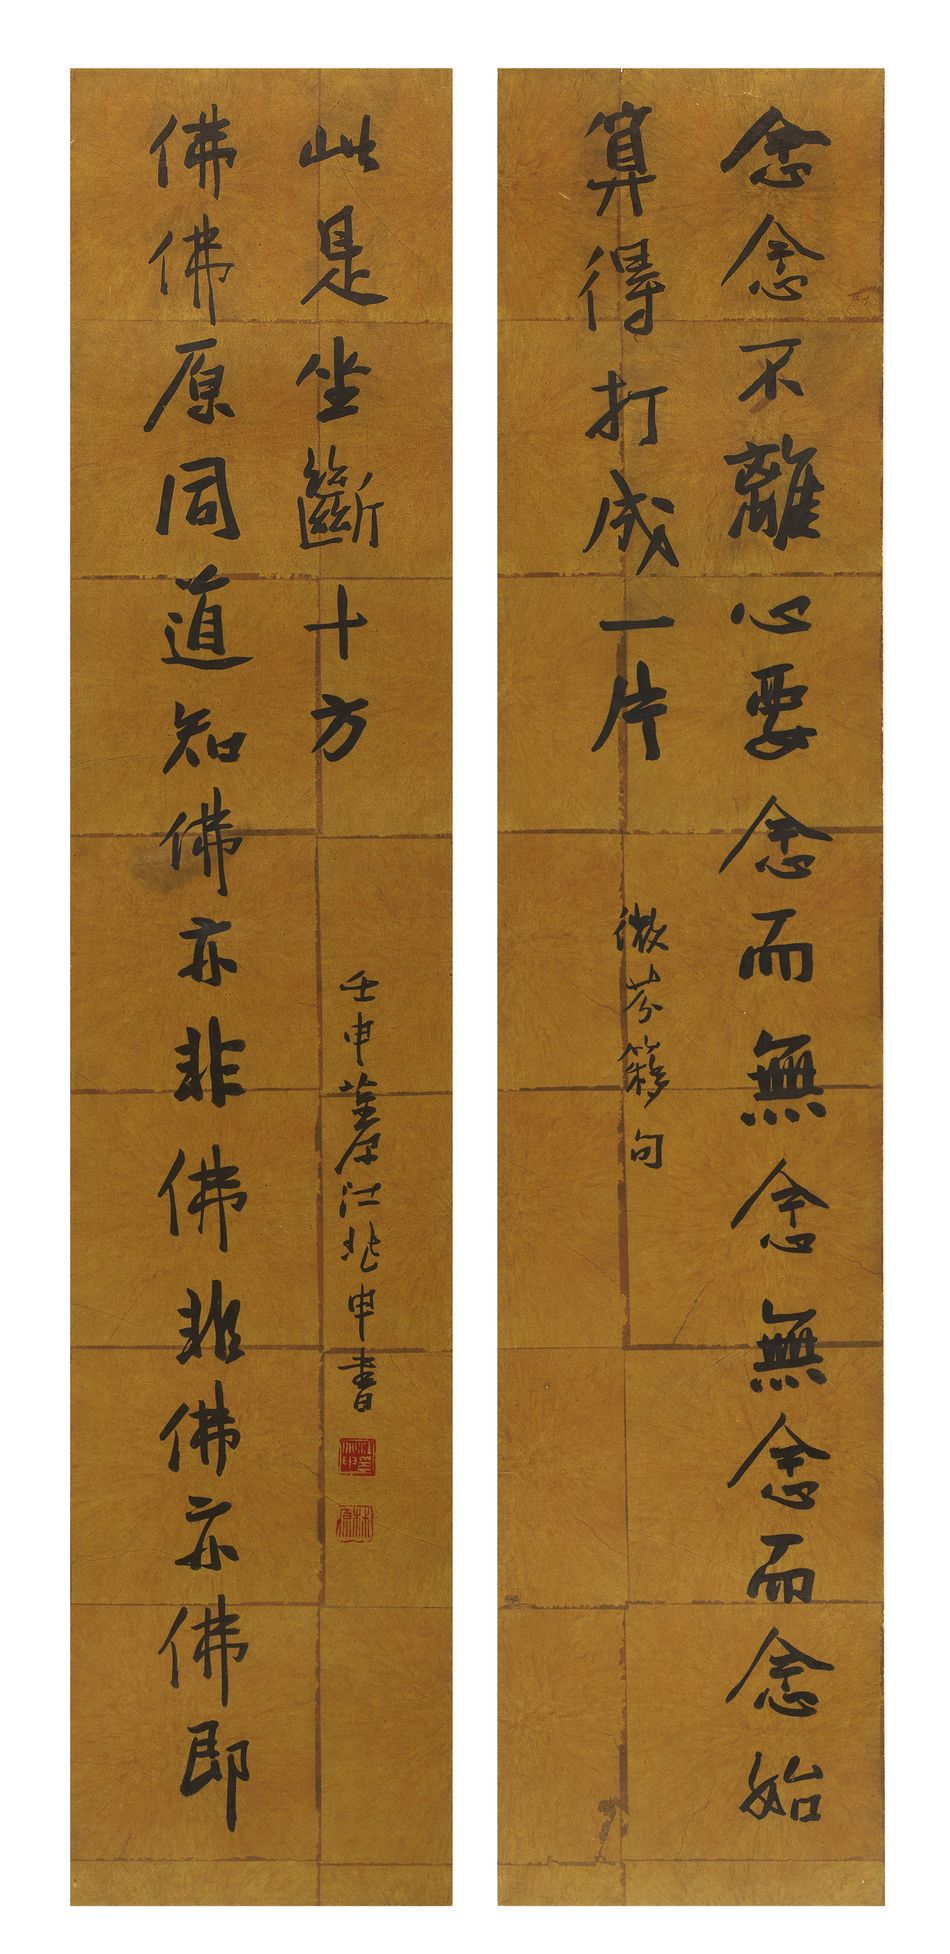 念念不離心要念而無念無念而念始
算得打成一片
微芬簃句
佛佛原同道知佛亦非佛非佛亦佛即
此是坐斷十方
壬申茮原江兆申書
江兆申印